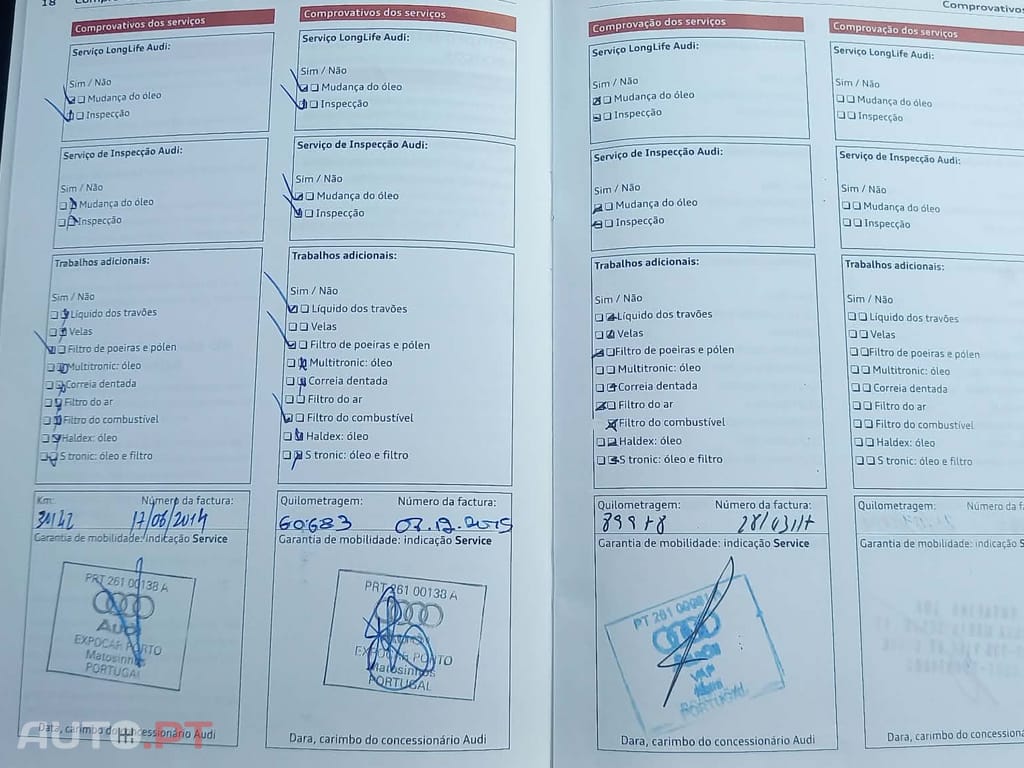 18
Comprovativos dos serviços
Serviço LongLife Audi:
Sim / Não
Mudança do óleo
Inspecção
Serviço de Inspecção Audi:
Sim / Não
Mudança do óleo
Inspecção
Trabalhos adicionais:
Sim / Não
Líquido dos travões
Velas
Filtro de poeiras e pólen
Multitronic: óleo
Correia dentada
Filtro do ar
Filtro do combustível
Haldex: óleo
S tronic: óleo e filtro
Km: Número da factura:
17/06/2014
Garantia de mobilidade: indicação Service
PRT 261 00138 A
Audi
EXPOCAR PORTO
Matosinhos
PORTUGAL
Dara, carimbo do concessionário Audi
Comprovativos dos serviços
Serviço LongLife Audi:
Sim / Não
Mudança do óleo
Inspecção
Serviço de Inspecção Audi:
Sim / Não
Mudança do óleo
Inspecção
Trabalhos adicionais:
Sim / Não
Líquido dos travões
Velas
Filtro de poeiras e pólen
Multitronic: óleo
Correia dentada
Filtro do ar
Filtro do combustível
Haldex: óleo
S tronic: óleo e filtro
Quilometragem: Número da factura:
60683 07.12.2015
Garantia de mobilidade: indicação Service
PRT 261 00138 A
EXPOCAR PORTO
Matosinhos
PORTUGAL
Dara, carimbo do concessionário Audi
Comprovação dos serviços
Serviço LongLife Audi:
Sim / Não
Mudança do óleo
Inspecção
Serviço de Inspecção Audi:
Sim / Não
Mudança do óleo
Inspecção
Trabalhos adicionais:
Sim / Não
Líquido dos travões
Velas
Filtro de poeiras e pólen
Multitronic: óleo
Correia dentada
Filtro do ar
Filtro do combustível
Haldex: óleo
S tronic: óleo e filtro
Quilometragem: Número da factura:
Garantia de mobilidade: indicação Service
PT 261
PORTUGAL
Dara, carimbo do concessionário Audi
Comprovativos
Comprovação dos serviços
Serviço LongLife Audi:
Sim / Não
Mudança do óleo
Inspecção
Serviço de Inspecção Audi:
Sim / Não
Mudança do óleo
Inspecção
Trabalhos adicionais:
Sim / Não
Líquido dos travões
Velas
Filtro de poeiras e pólen
Multitronic: óleo
Correia dentada
Filtro do ar
Filtro do combustível
Haldex: óleo
S tronic: óleo e filtro
Quilometragem: Número da
Garantia de mobilidade: indicação
Dara, carimbo do concessionário
AUTO.PT